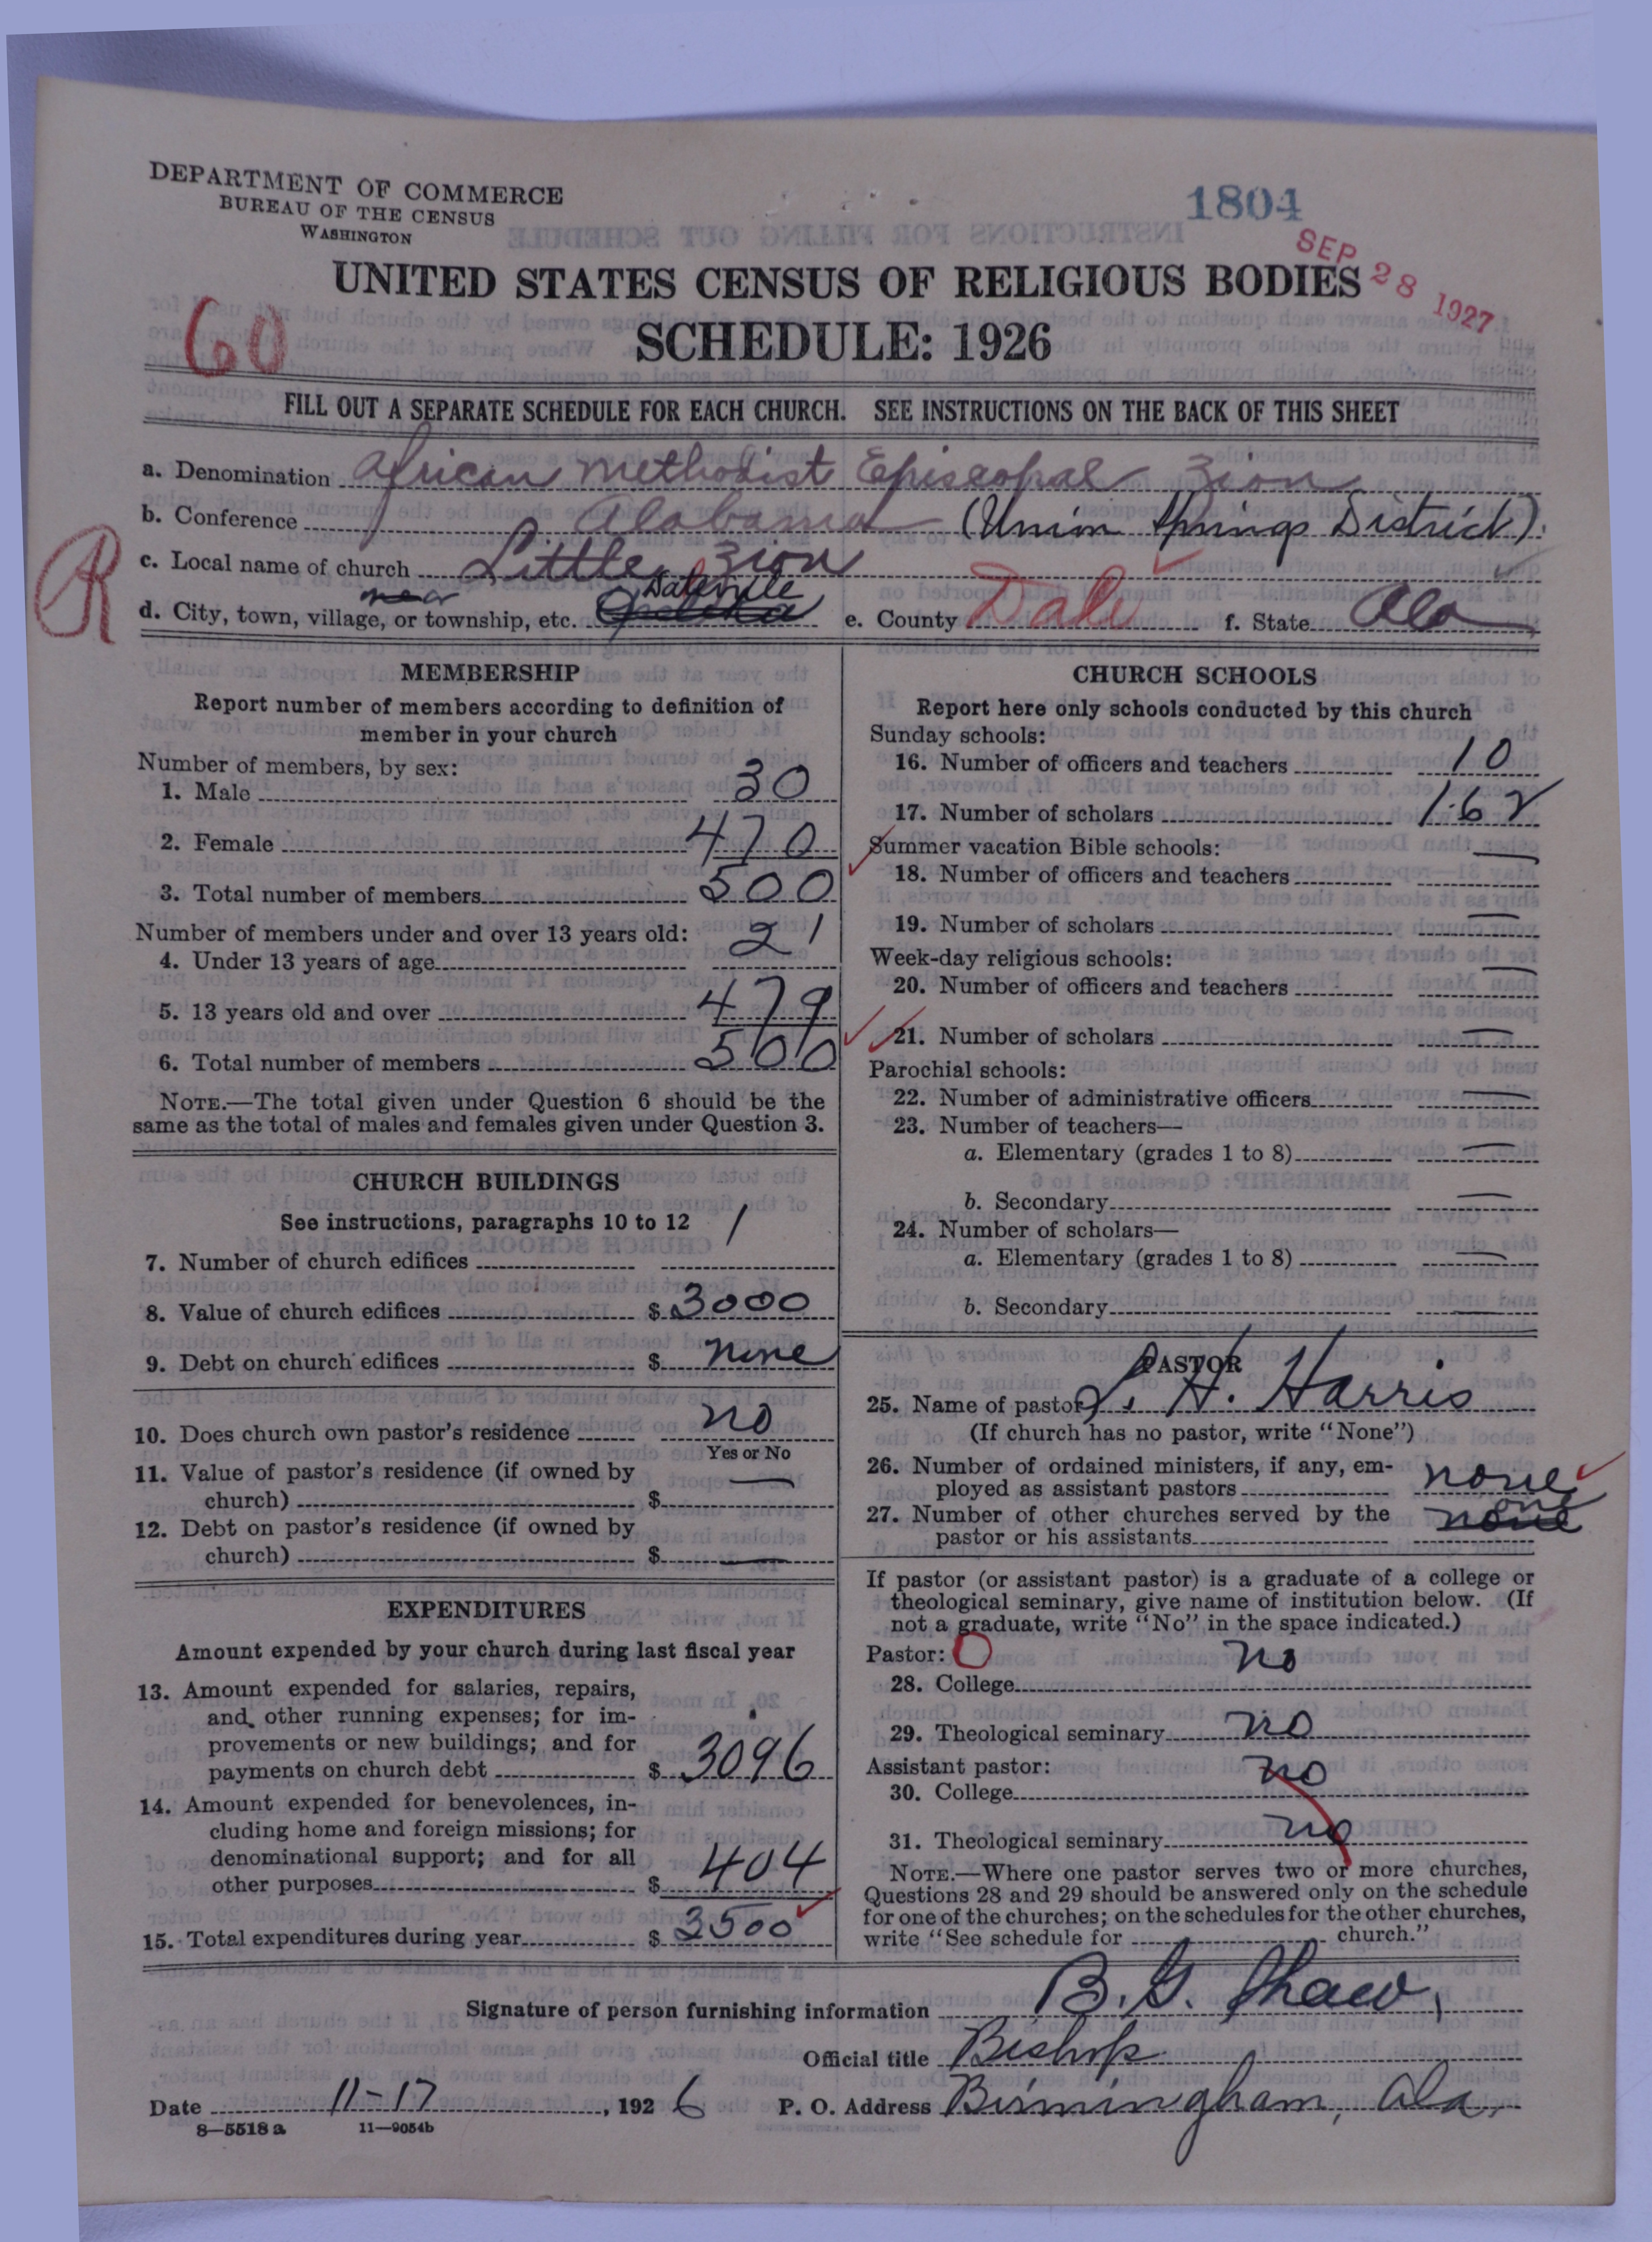 DEPARTMENT OF COMMERCE
BUREAU OF THE CENSUS
WASHINGTON
1804
SEP 28 1927
UNITED STATES CENSUS OF RELIGIOUS BODIES
60
SCHEDULE: 1926
FILL OUT A SEPARATE SCHEDULE FOR EACH CHURCH. SEE INSTRUCTIONS ON THE BACK OF THIS SHEET
a. Denomination African Methodist Episcopal Zion
b. Conference Alabama (Union Springs District).
c. Local name of church Little Zion
near Daleville
d. City, town, village, or township, etc. Opelika e. County Dale f. State Ala
R
MEMBERSHIP
Report number of members according to definition of
member in your church
Number of members, by sex:
1. Male 30
2. Female 470
3. Total number of members 500
Number of members under and over 13 years old:
4. Under 13 years of age 21
5. 13 years old and over 479
6. Total number of members 500
NOTE.—The total given under Question 6 should be the
same as the total of males and females given under Question 3.
CHURCH BUILDINGS
See instructions, paragraphs 10 to 12
7. Number of church edifices 1
8. Value of church edifices $ 3000
9. Debt on church edifices $ none
10. Does church own pastor's residence no
Yes or No
11. Value of pastor's residence (if owned by
church) $ —
12. Debt on pastor's residence (if owned by
church) $ —
EXPENDITURES
Amount expended by your church during last fiscal year
13. Amount expended for salaries, repairs,
and other running expenses; for im-
provements or new buildings; and for
payments on church debt $ 3096
14. Amount expended for benevolences, in-
cluding home and foreign missions; for
denominational support; and for all
other purposes $ 404
15. Total expenditures during year $ 3500
CHURCH SCHOOLS
Report here only schools conducted by this church
Sunday schools:
16. Number of officers and teachers 10
17. Number of scholars 162
Summer vacation Bible schools:
18. Number of officers and teachers —
19. Number of scholars —
Week-day religious schools:
20. Number of officers and teachers —
21. Number of scholars —
Parochial schools:
22. Number of administrative officers —
23. Number of teachers—
a. Elementary (grades 1 to 8) —
b. Secondary —
24. Number of scholars—
a. Elementary (grades 1 to 8) —
b. Secondary —
PASTOR
25. Name of pastor L. H. Harris
(If church has no pastor, write "None")
26. Number of ordained ministers, if any, em-
ployed as assistant pastors none
27. Number of other churches served by the
pastor or his assistants none one
If pastor (or assistant pastor) is a graduate of a college or
theological seminary, give name of institution below. (If
not a graduate, write "No" in the space indicated.)
Pastor: O
28. College no
29. Theological seminary no
Assistant pastor:
30. College no
31. Theological seminary no
NOTE.—Where one pastor serves two or more churches,
Questions 28 and 29 should be answered only on the schedule
for one of the churches; on the schedules for the other churches,
write "See schedule for church."
Signature of person furnishing information B. G. Shaw,
Official title Bishop
Date 11-17, 1926 P. O. Address Birmingham, Ala.
8—5518 a 11—9054b